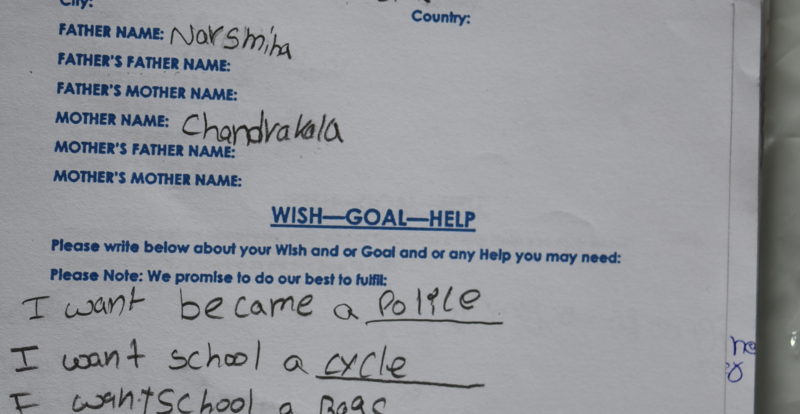 City:
Country:
FATHER NAME: Narsmiha
FATHER'S FATHER NAME:
FATHER'S MOTHER NAME:
MOTHER NAME: Chandrakala
MOTHER'S FATHER NAME:
MOTHER'S MOTHER NAME:
WISH—GOAL—HELP
Please write below about your Wish and or Goal and or any Help you may need:
Please Note: We promise to do our best to fulfil:
I want became a Police
I want school a cycle
I want school a Bags